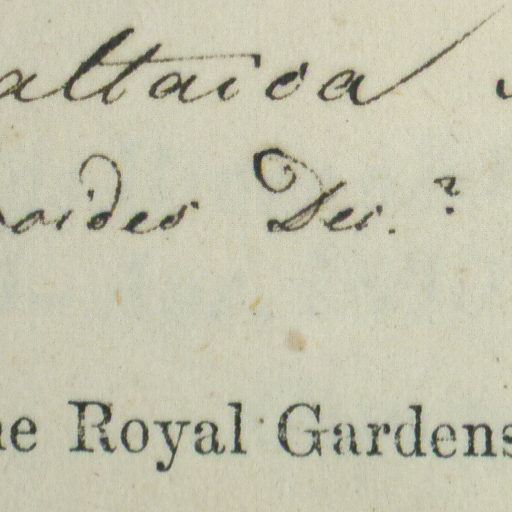 altaica
oides Des. ?
he Royal Gardens